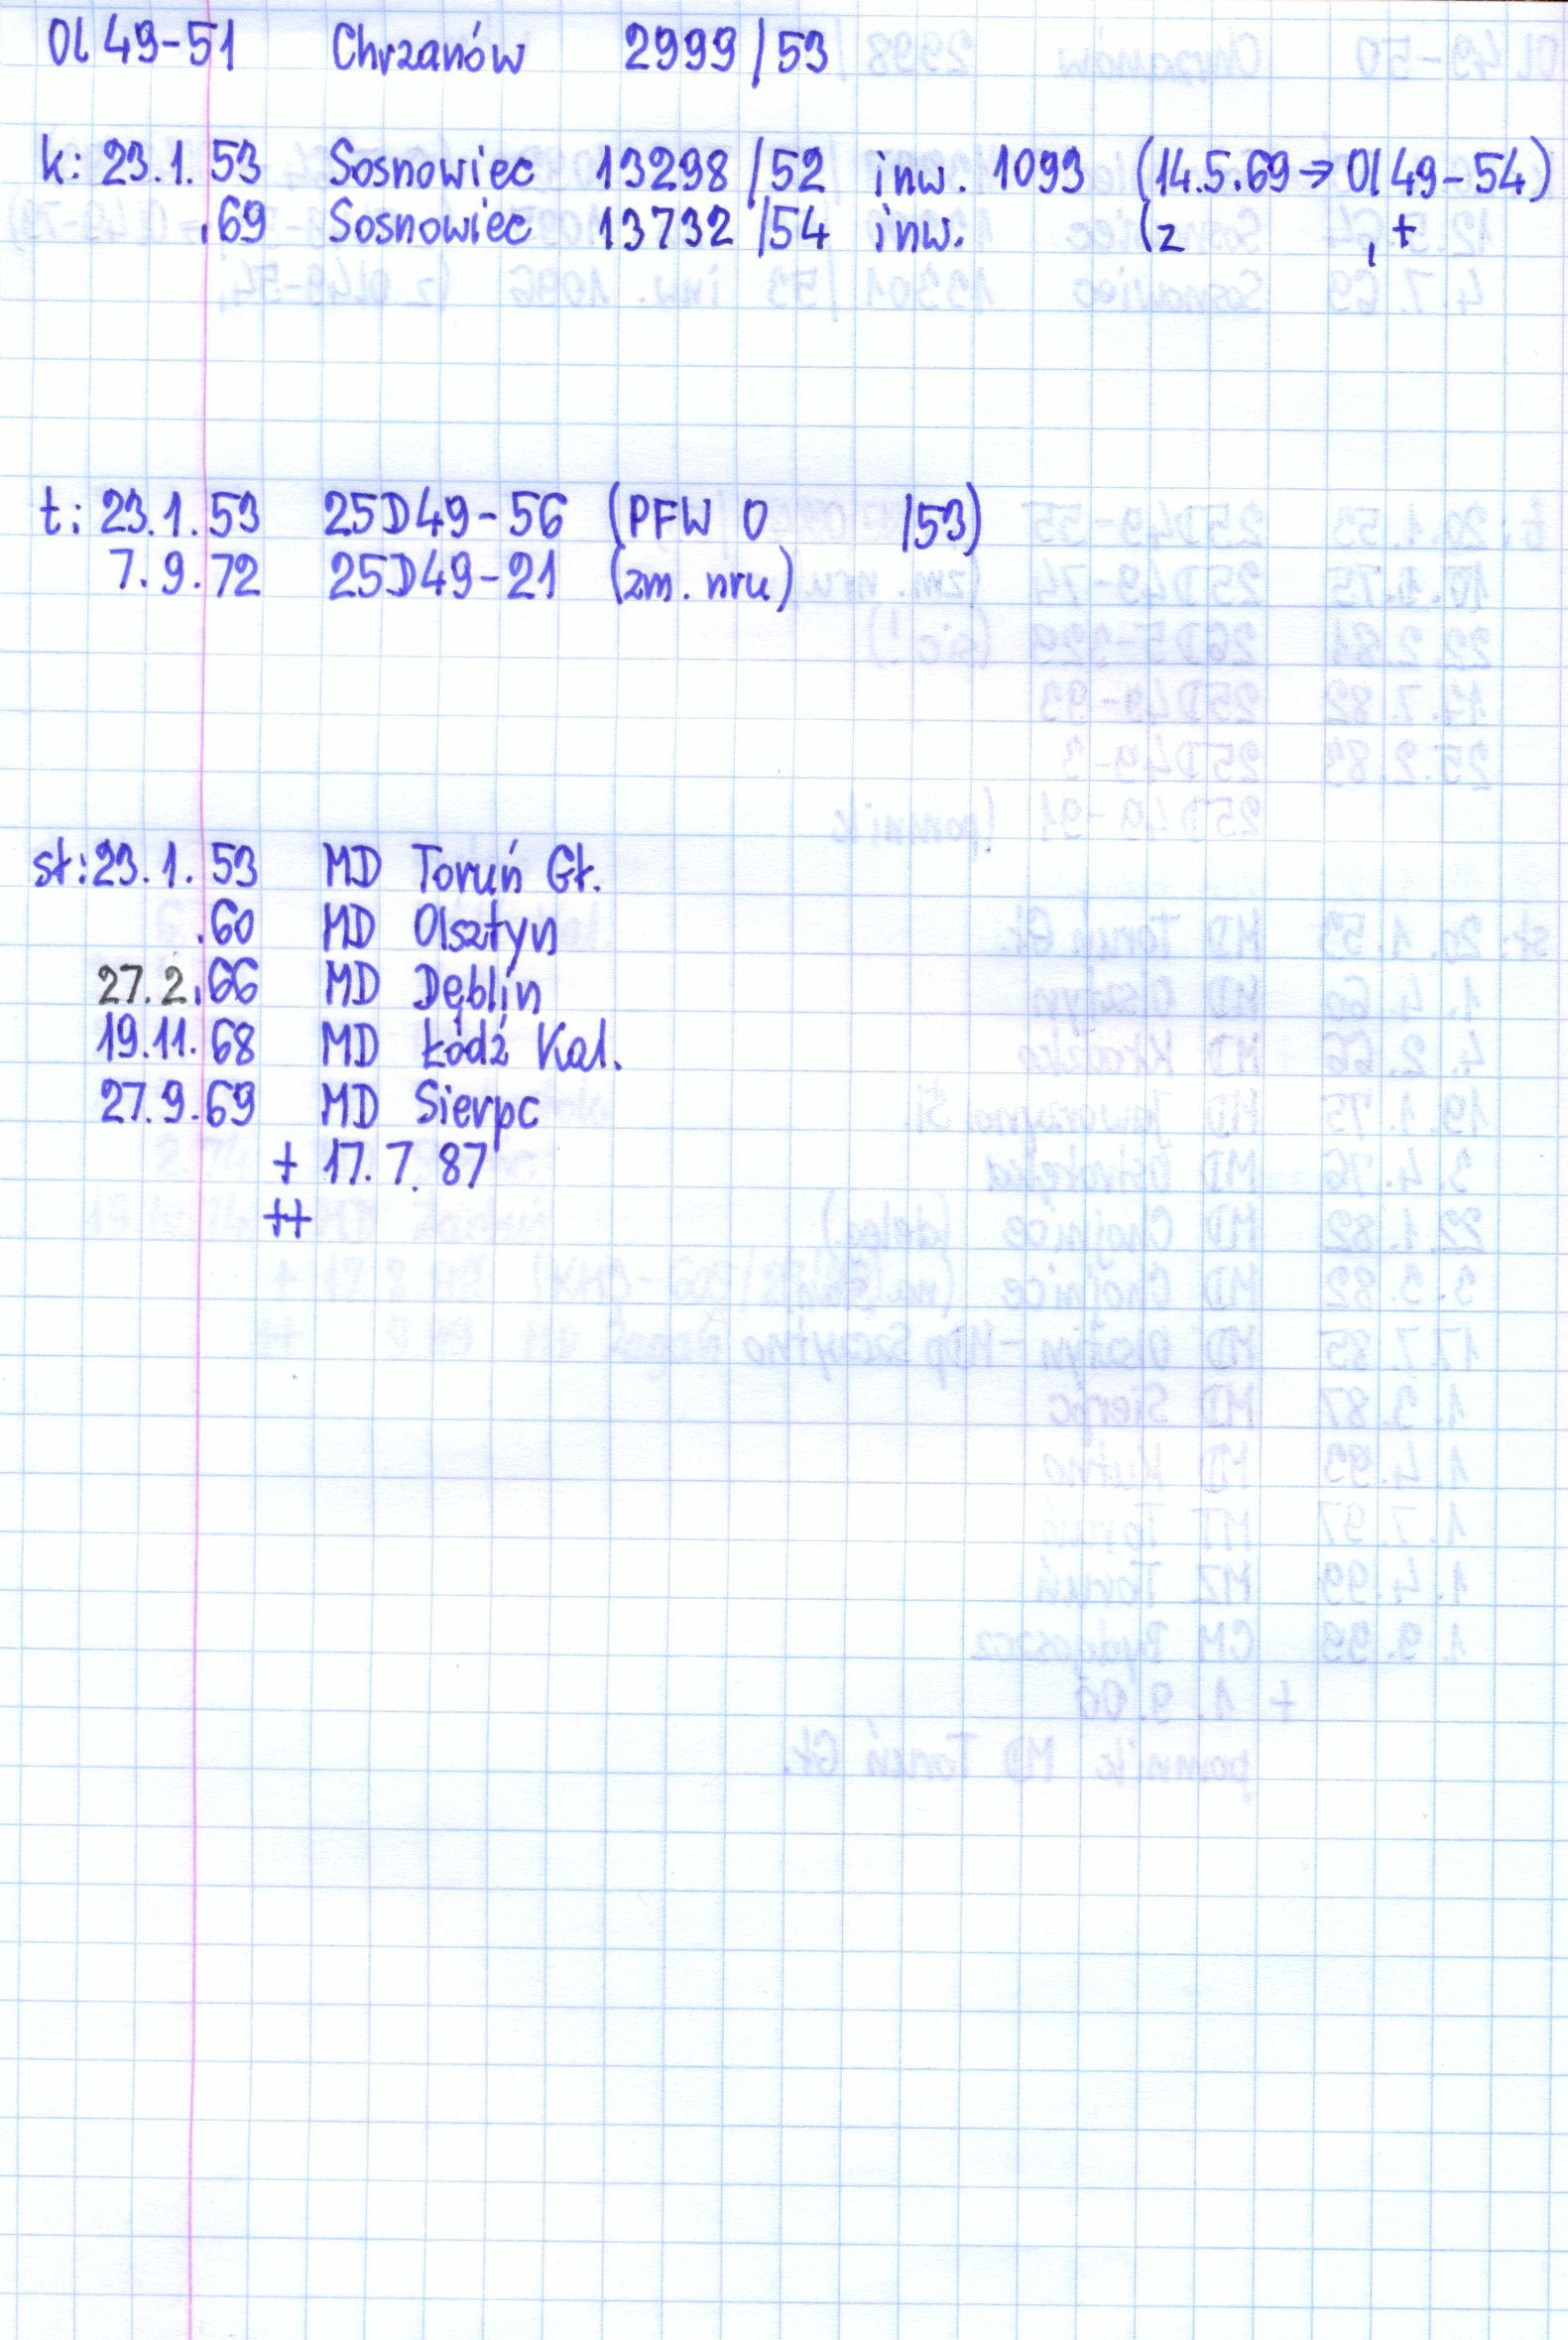 Ol 49-51 Chrzanów 2999/53
k: 23.1.53 Sosnowiec 13298/52 inw. 1093 (14.5.69→Ol 49-54)
.69 Sosnowiec 13732/54 inw. (z , +
t: 23.1.53 25D49-56 (PFW 0 /53)
7.9.72 25D49-21 (zm. nru)
st: 23.1.53 MD Toruń Gł.
.60 MD Olsztyn
27.2.66 MD Dęblin
19.11.68 MD Łódź Kal.
27.9.69 MD Sierpc
+ 17.7.87
++